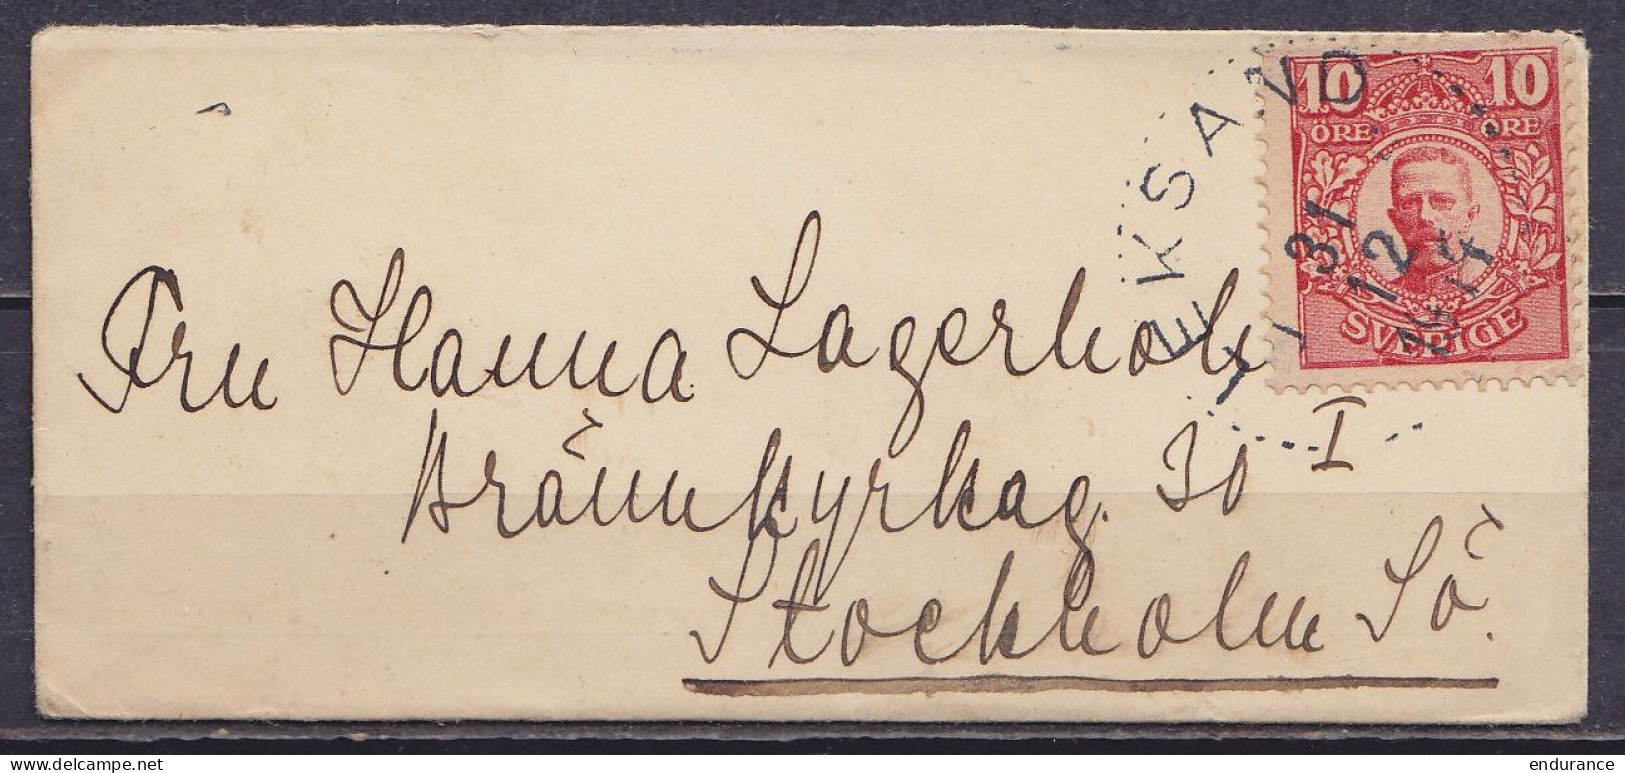 10 10
ÖRE ÖRE
SVERIGE
LEKSAND
31
12
1914
Fru Hanna Lagerholm
Brännkyrkag. 30 I
Stockholm Sö.
delcampe.net
endurance